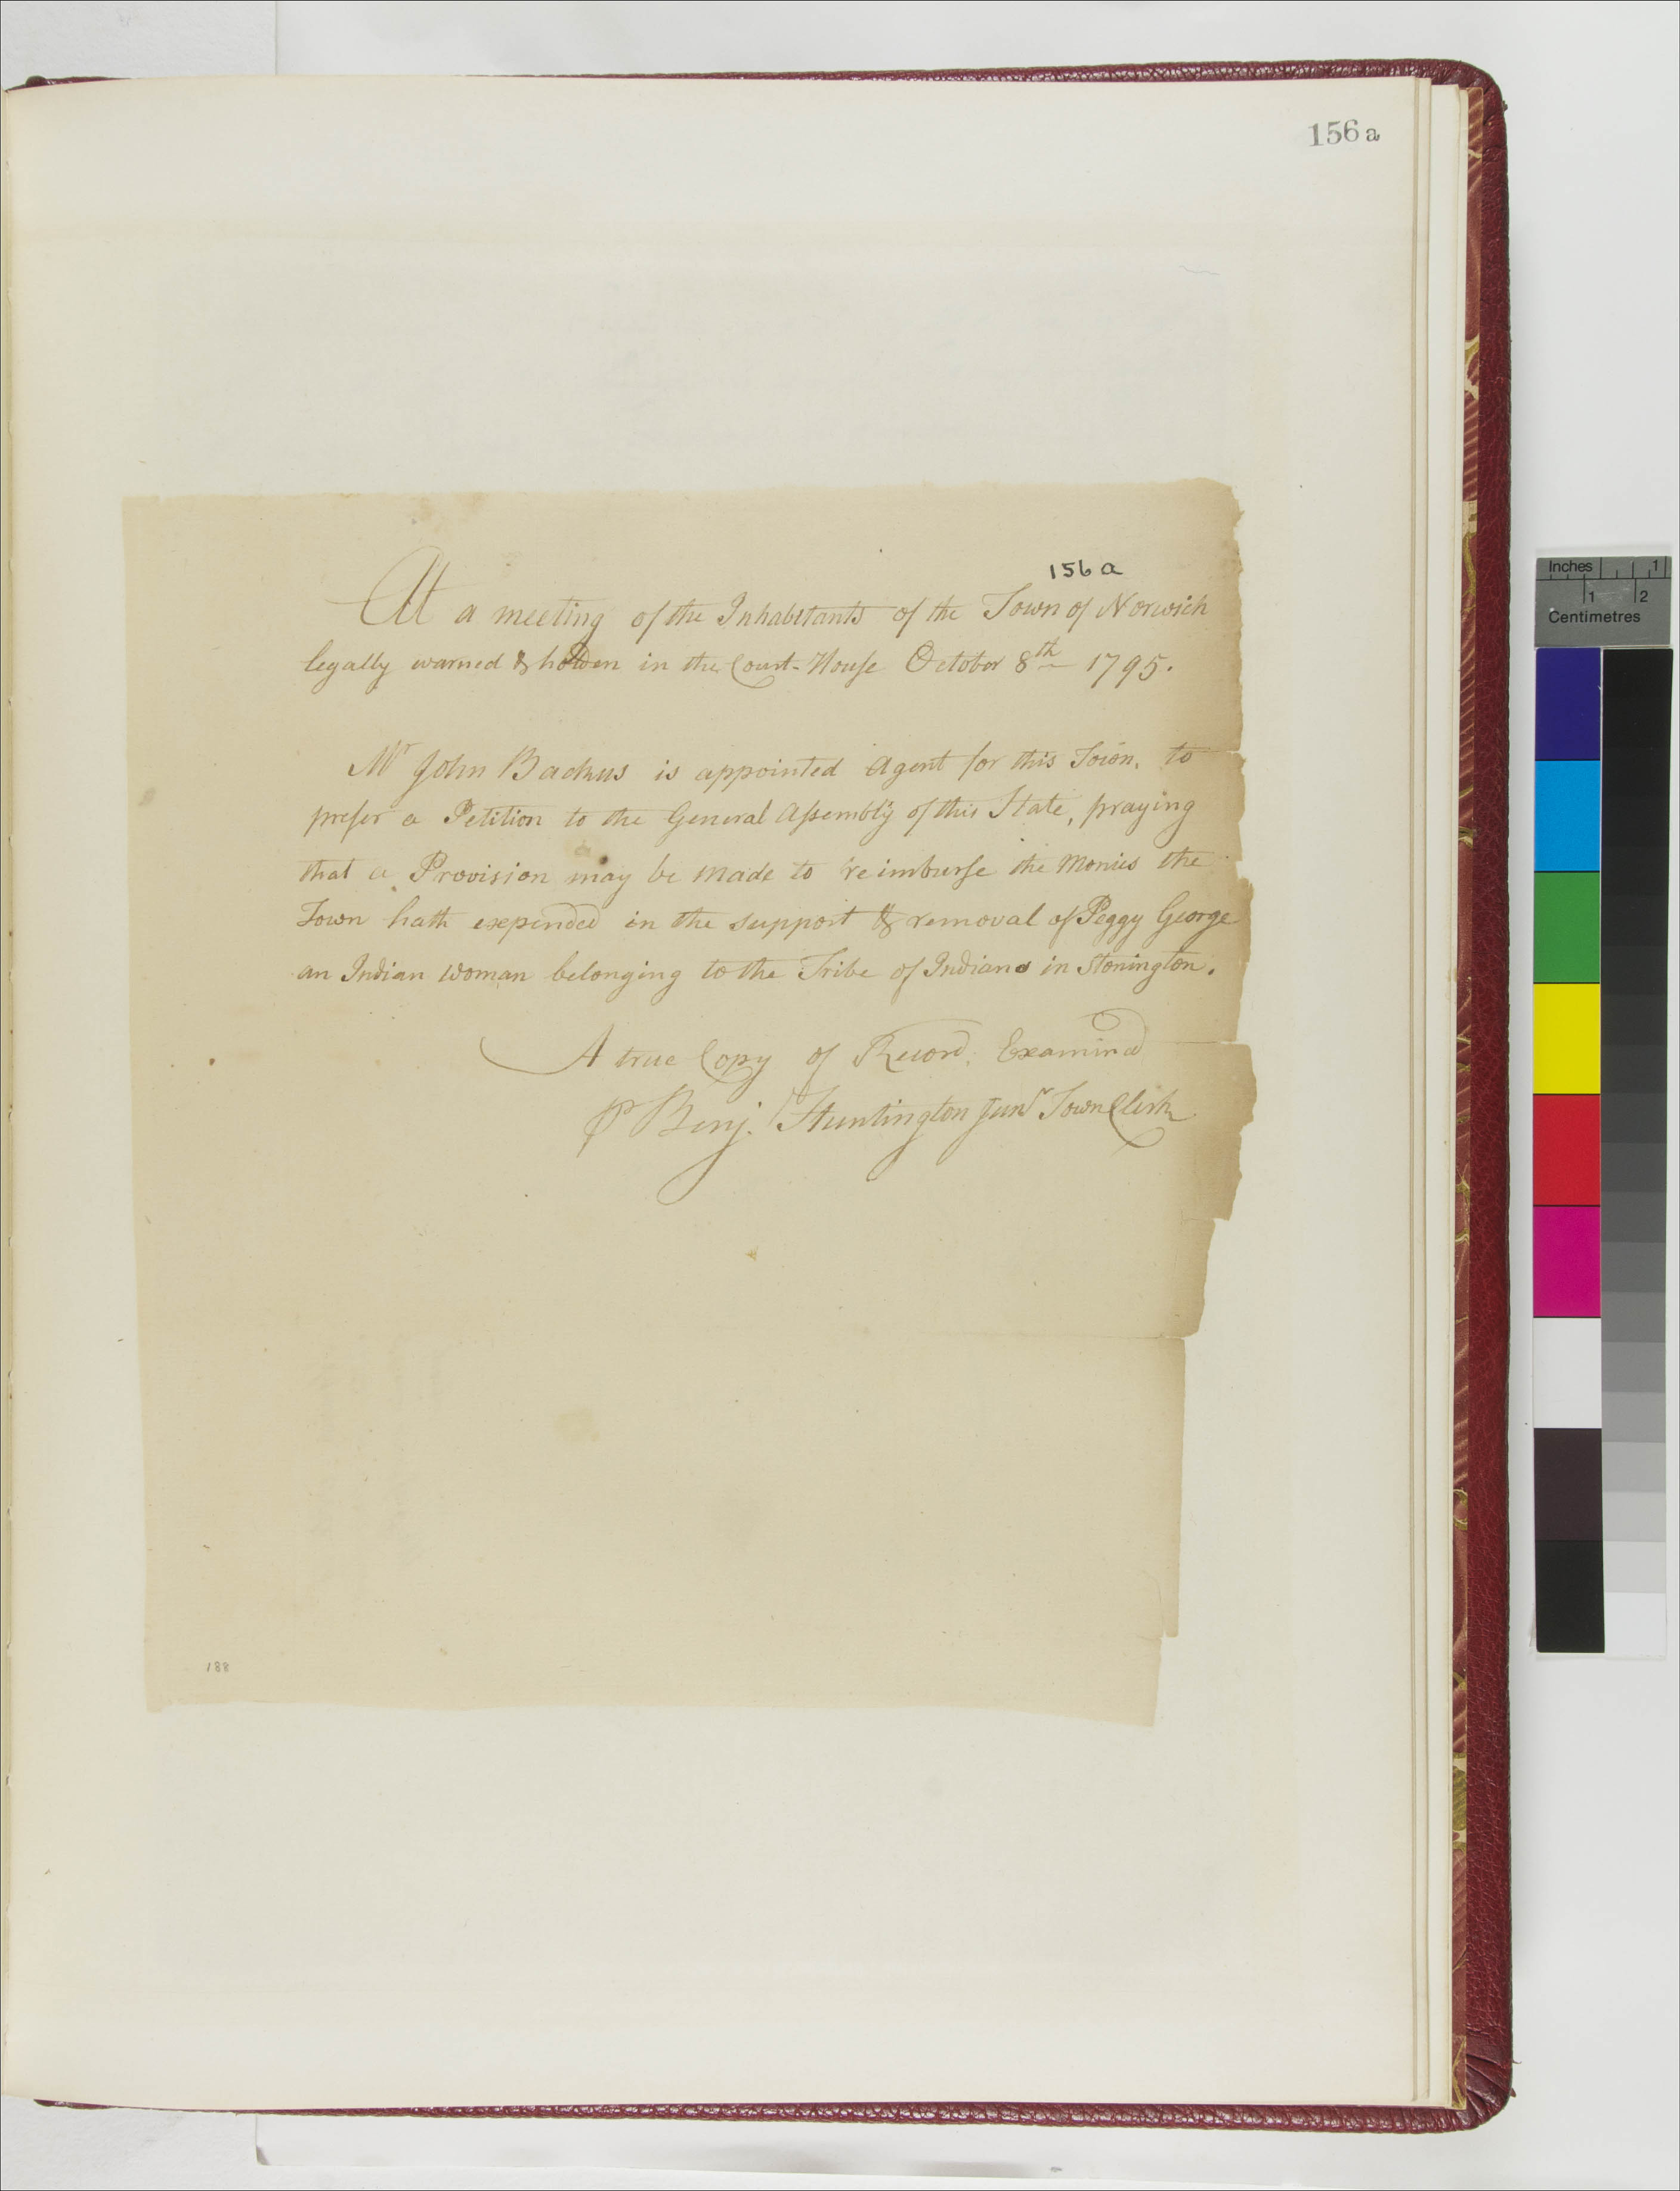 156 a
156 a
At a meeting of the Inhabitants of the Town of Norwich
legally warned & holden in the Court-House October 8th 1795.
Mr John Backus is appointed Agent for this Town, to
prefer a Petition to the General Assembly of this State, praying
that a Provision may be made to reimburse the Monies the
Town hath expended in the support & removal of Peggy George
an Indian woman belonging to the Tribe of Indians in Stonington.
A true Copy of Record, Examined
P Benj. Huntington Junr Town Clerk
188
Inches 1
1 2
Centimetres